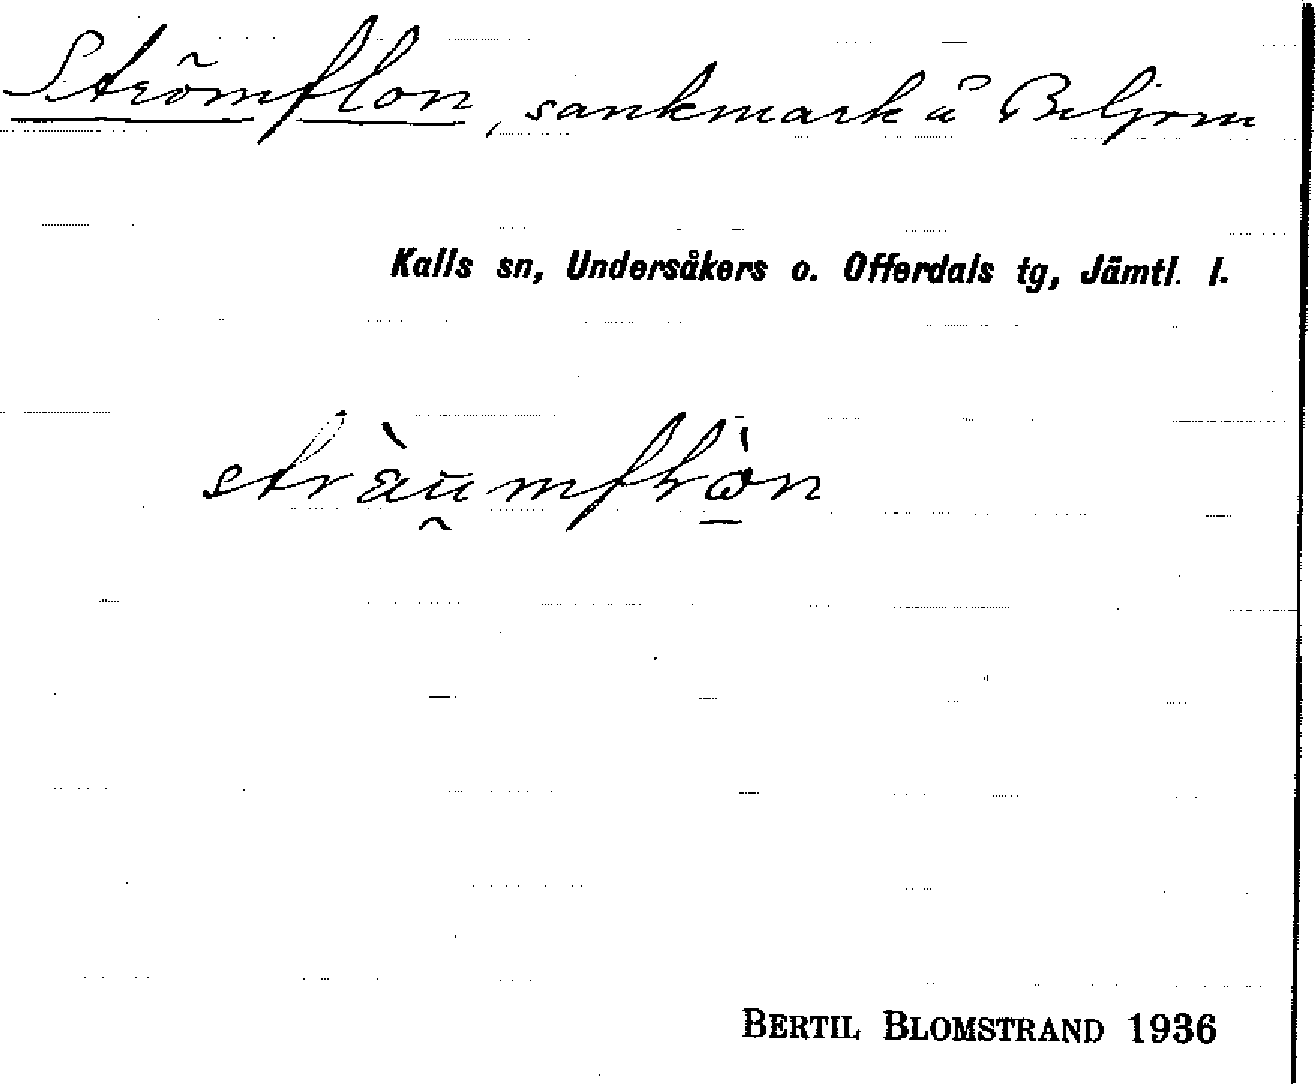 Strömflon, sankmark å Beljom
Kalls sn, Undersåkers o. Offerdals tg, Jämtl. l.
BERTIL BLOMSTRAND 1936